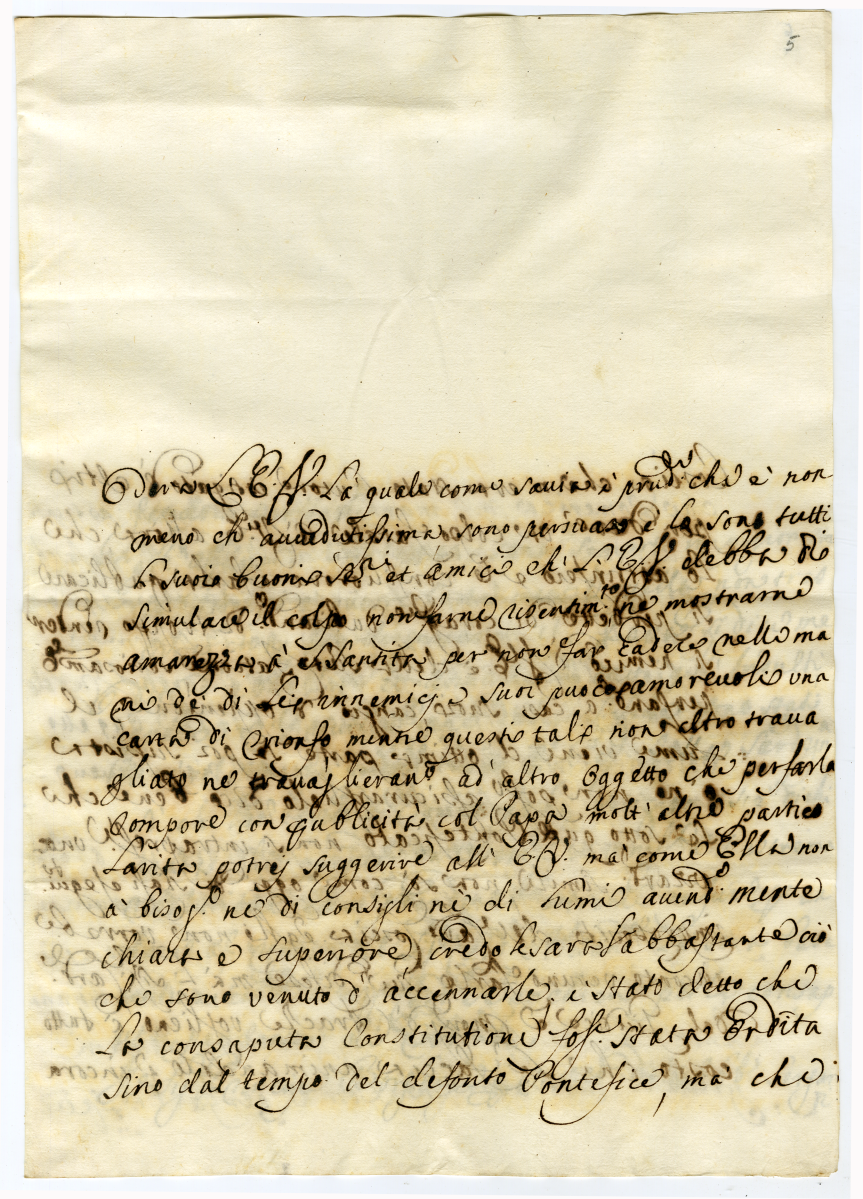 5
dera L'E.V. La quale come savia e prud.te che è non
meno ch' avvedutissima sono persuaso e lo sono tutti
li suoi buoni Se.ri et amici ch' L'E.V. debba di
simulare il colpo non farne risentim.to ne mostrarne
amarezza à chi sia per non far cadere nelle ma
ni de di Lei innemici e suoi puoco amorevoli una
carta di trionfo mentre questi tali non altro trava
gliato ne travaglieran.o ad' altro oggetto che per farla
Compore con publicità col Papa molt' altre partico
larità potrej suggerire all' E.V. ma come Ella non
à bisog.o ne di consigli nè di lumi avend.o mente
chiara e superiore, credo le sarà abbastante ciò
che sono venuto d' accennarle; è stato detto che
La consaputa Constitutione foss.e stata Ordita
sino dal tempo del defonto Pontefice, ma che